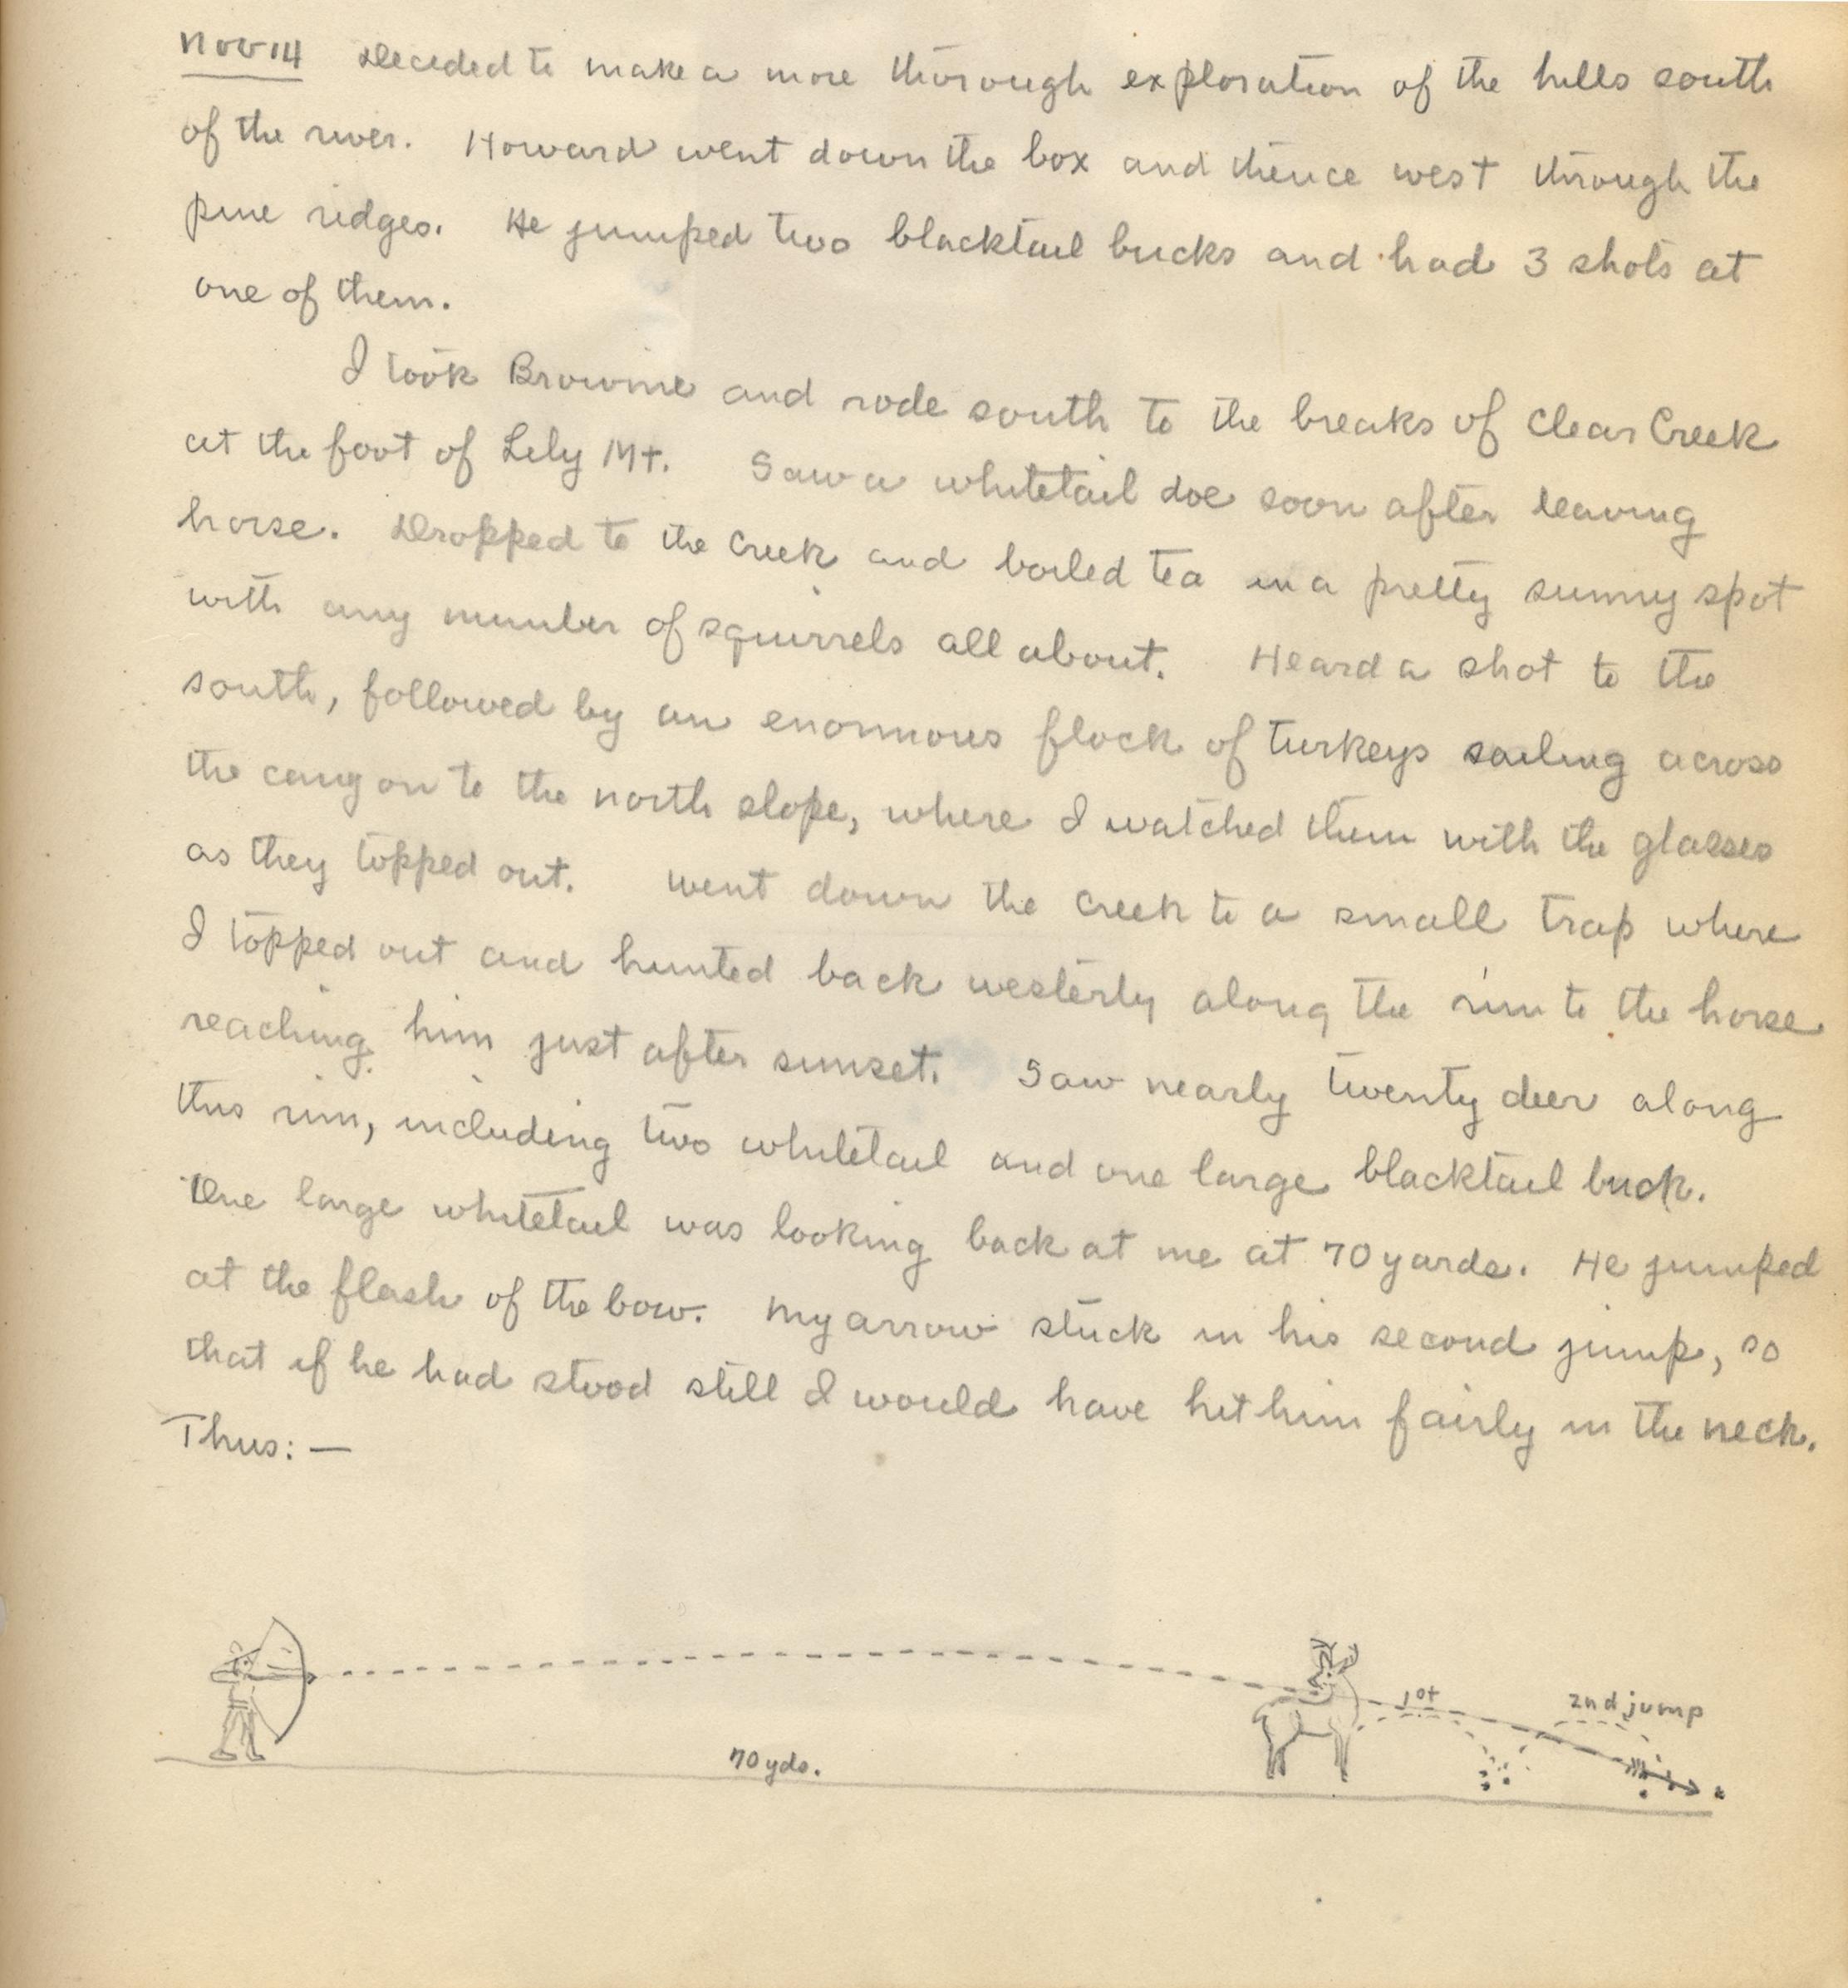 Nov 14 Decided to make a more thorough exploration of the hills south
of the river. Howard went down the box and thence west through the
pine ridges. He jumped two blacktail bucks and had 3 shots at
one of them.
I took Brownie and rode south to the breaks of Clear Creek
at the foot of Lily Mt. Saw a whitetail doe soon after leaving
horse. Dropped to the creek and boiled tea in a pretty sunny spot
with any number of squirrels all about. Heard a shot to the
south, followed by an enormous flock of turkeys sailing across
the canyon to the north slope, where I watched them with the glasses
as they topped out. Went down the creek to a small trap where
I topped out and hunted back westerly along the rim to the horse
reaching him just after sunset. Saw nearly twenty deer along
this rim, including two whitetail and one large blacktail buck.
One large whitetail was looking back at me at 70 yards. He jumped
at the flash of the bow. My arrow stuck in his second jump, so
that if he had stood still I would have hit him fairly in the neck.
Thus: —
1st
2nd jump
70 yds.